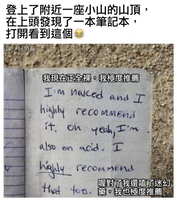 登上了附近一座小山的山頂，
在上頭發現了一本筆記本，
打開看到這個😂
我現在正全裸。我極度推薦
I'm naked and I
highly recommend
it. oh yeah, I'm
also on acid. I
highly recommend
that too.
喔對了我還嗑了迷幻
藥。我也極度推薦